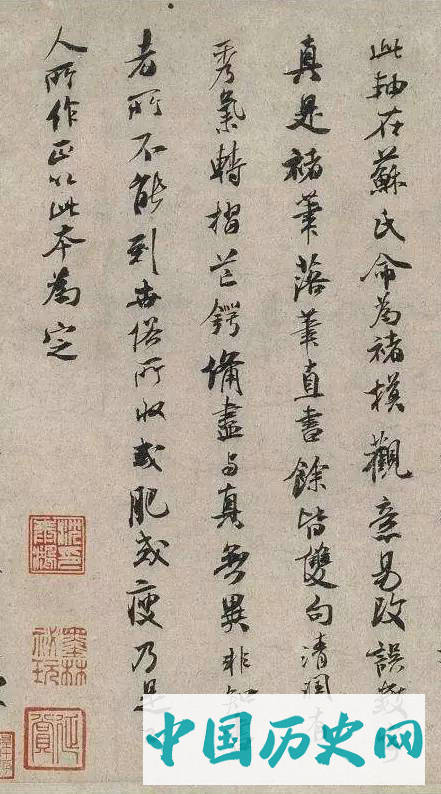 此軸在蘇氏命為褚摸觀意易改誤數
真是褚筆落筆直書餘皆雙句清潤有
秀氣轉摺芒鍔備盡与真無異非知
者所不能到世俗所收或肥或瘦乃是
人所作正以此本為定
墨林祕玩
中国历史网